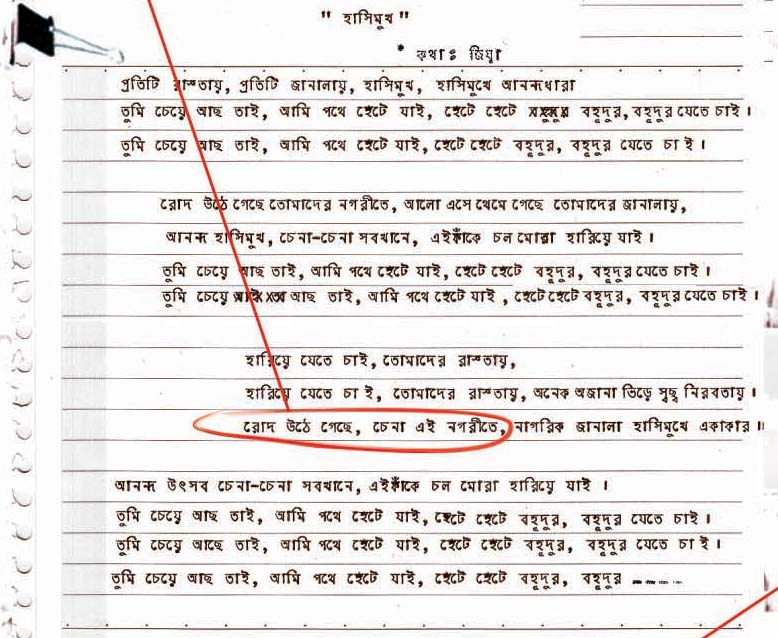 " হাসিমুখ "
* কথাঃ জিয়া
প্রতিটি রাস্তায়, প্রতিটি জানালায়, হাসিমুখ, হাসিমুখে আনন্দধারা
তুমি চেয়ে আছ তাই, আমি পথে হেটে যাই, হেটে হেটে বহূদুর, বহূদুর যেতে চাই ।
তুমি চেয়ে আছ তাই, আমি পথে হেটে যাই, হেটে হেটে বহূদুর, বহূদুর যেতে চাই ।
রোদ উঠে গেছে তোমাদের নগরীতে, আলো এসে থেমে গেছে তোমাদের জানালায়,
আনন্দ হাসিমুখ, চেনা-চেনা সবখানে, এইফাঁকে চল মোরা হারিয়ে যাই ।
তুমি চেয়ে আছ তাই, আমি পথে হেটে যাই, হেটে হেটে বহূদুর, বহূদুর যেতে চাই ।
তুমি চেয়ে আছ তাই, আমি পথে হেটে যাই , হেটে হেটে বহূদুর, বহূদুর যেতে চাই ।
হারিয়ে যেতে চাই, তোমাদের রাস্তায়,
হারিয়ে যেতে চাই, তোমাদের রাস্তায়, অনেক অজানা ভিড়ে সুছ নিরবতায় ।
রোদ উঠে গেছে, চেনা এই নগরীতে, নাগরিক জানালা হাসিমুখে একাকার ॥
আনন্দ উৎসব চেনা-চেনা সবখানে, এইফাঁকে চল মোরা হারিয়ে যাই ।
তুমি চেয়ে আছ তাই, আমি পথে হেটে যাই, হেটে হেটে বহূদুর, বহূদুর যেতে চাই ।
তুমি চেয়ে আছে তাই, আমি পথে হেটে যাই, হেটে হেটে বহূদুর, বহূদুর যেতে চাই ।
তুমি চেয়ে আছ তাই, আমি পথে হেটে যাই, হেটে হেটে বহূদুর, বহূদুর ----